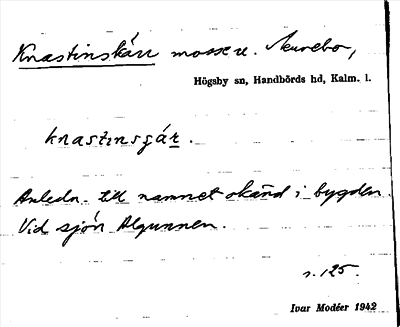 Knastinskärr mosse u. Skurebo,
Högsby sn, Handbörds hd, Kalm. l.
knastinsʂár.
Anledn. till namnet okänd i bygden.
Vid sjön Algunnen.
s. 125.
Ivar Modéer 1942